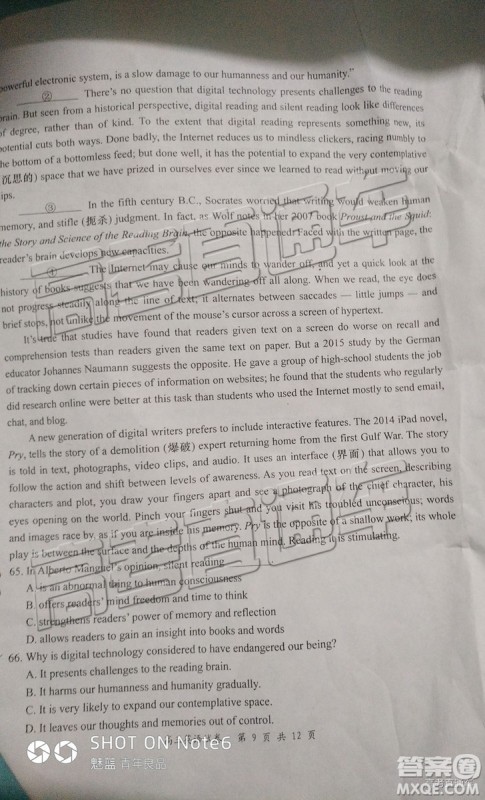 powerful electronic system, is a slow damage to our humanness and our humanity."
② There's no question that digital technology presents challenges to the reading
brain. But seen from a historical perspective, digital reading and silent reading look like differences
of degree, rather than of kind. To the extent that digital reading represents something new, its
potential cuts both ways. Done badly, the Internet reduces us to mindless clickers, racing numbly to
the bottom of a bottomless feed; but done well, it has the potential to expand the very contemplative
(沉思的) space that we have prized in ourselves ever since we learned to read without moving our
lips.
③ In the fifth century B.C., Socrates worried that writing would weaken human
memory, and stifle (扼杀) judgment. In fact, as Wolf notes in her 2007 book Proust and the Squid:
the Story and Science of the Reading Brain, the opposite happened: Faced with the written page, the
reader's brain develops new capacities.
④ The Internet may chuse our minds to wander off, and yet a quick look at the
history of books suggests that we have been wandering off all along. When we read, the eye does
not progress steadily along the line of text; it alternates between saccades — little jumps — and
brief stops, not unlike the movement of the mouse's cursor across a screen of hypertext.
It's true that studies have found that readers given text on a screen do worse on recall and
comprehension tests than readers given the same text on paper. But a 2015 study by the German
educator Johannes Naumann suggests the opposite. He gave a group of high-school students the job
of tracking down certain pieces of information on websites; he found that the students who regularly
did research online were better at this task than students who used the Internet mostly to send email,
chat, and blog.
A new generation of digital writers prefers to include interactive features. The 2014 iPad novel,
Pry, tells the story of a demolition (爆破) expert returning home from the first Gulf War. The story
is told in text, photographs, video clips, and audio. It uses an interface (界面) that allows you to
follow the action and shift between levels of awareness. As you read text on the screen, describing
characters and plot, you draw your fingers apart and see a photograph of the chief character, his
eyes opening on the world. Pinch your fingers shut and you visit his troubled unconscious; words
and images race by, as if you are inside his memory. Pry is the opposite of a shallow work, its whole
play is between the surface and the depths of the human mind. Reading it is stimulating.
65. In Alberto Manguel's opinion, silent reading
A. is an abnormal thing to human consciousness
B. offers readers' mind freedom and time to think
C. strengthens readers' power of memory and reflection
D. allows readers to gain an insight into books and words
66. Why is digital technology considered to have endangered our being?
A. It presents challenges to the reading brain.
B. It harms our humanness and humanity gradually.
C. It is very likely to expand our contemplative space.
D. It leaves our thoughts and memories out of control.
第 9 页 共 12 页
SHOT ON Note6
魅蓝 青年良品
答案圈
MXQE.COM